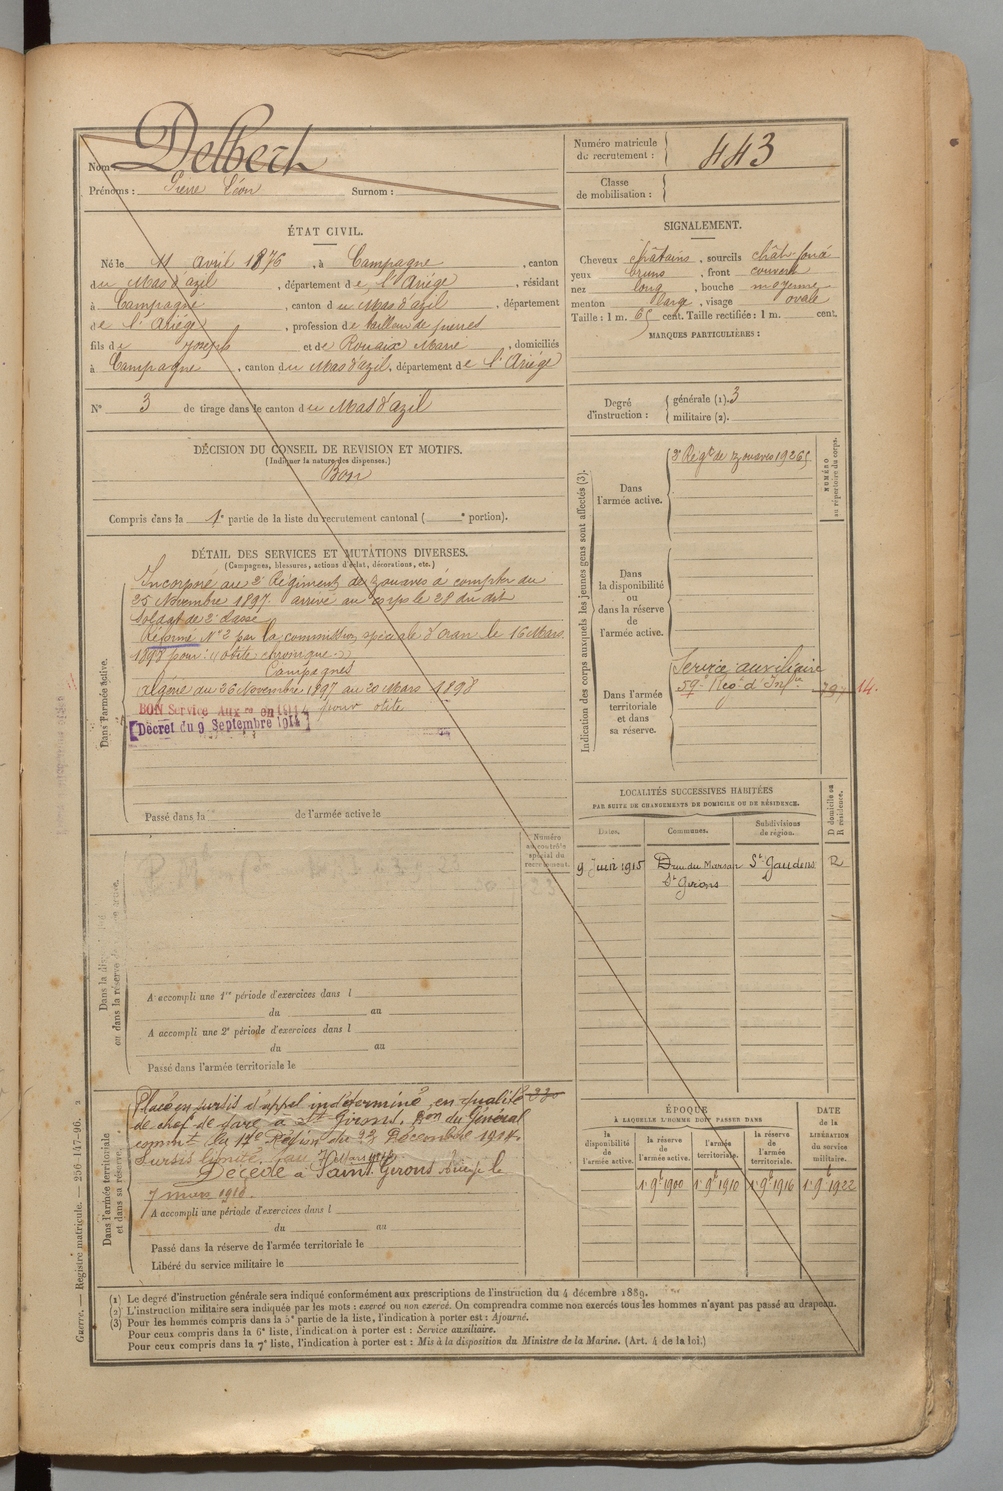 Nom : Delbech
Prénoms : Pierre Léon Surnom :
Numéro matricule du recrutement : 443
Classe de mobilisation :
ÉTAT CIVIL.
Né le 11 avril 1876, à Campagne, canton
du Mas d'azil, département de l'Ariége, résidant
à Campagne, canton du Mas d'azil, département
de l'Ariége, profession de tailleur de pierres
fils de Joseph et de Rouaix Marie, domiciliés
à Campagne, canton du Mas d'azil, département de l'Ariége
N° 3 de tirage dans le canton du Mas d'azil
SIGNALEMENT.
Cheveux châtains, sourcils chât. foncé
yeux bruns, front couvert
nez long, bouche moyenne
menton large, visage ovale
Taille : 1 m. 65 cent. Taille rectifiée : 1 m. cent.
MARQUES PARTICULIÈRES :
Degré d'instruction : générale (1). 3
militaire (2).
DÉCISION DU CONSEIL DE REVISION ET MOTIFS.
(Indiquer la nature des dispenses.)
Bon
Compris dans la 1e partie de la liste du recrutement cantonal ( e portion).
DÉTAIL DES SERVICES ET MUTATIONS DIVERSES.
(Campagnes, blessures, actions d'éclat, décorations, etc.)
Dans l'armée active.
Incorporé au 2e Régiment de zouaves à compter du
25 Novembre 1897. arrivé au corps le 28 du dit
Soldat de 2e classe
Réformé N° 2 par la commission spéciale d'oran le 16 Mars
1898 pour : otite chronique
Campagnes
Algérie du 26 Novembre 1897 au 20 Mars 1898
BON Service Auxre en 1914 pour otite
Décret du 9 Septembre 1914
Passé dans la de l'armée active le
Numéro au contrôle spécial du recrutement.
ou dans la réserve de
A accompli une 1re période d'exercices dans l
du au
A accompli une 2e période d'exercices dans l
du au
Passé dans l'armée territoriale le
Dans l'armée territoriale et dans sa réserve.
Placé en sursis d'appel indéterminé en qualité
de chef de gare à St Girons. Bon du Général
commt la 17e Région du 23 Décembre 1914
Décédé à Saint-Girons Ariège le
7 mars 1918.
A accompli une période d'exercices dans l
du au
Passé dans la réserve de l'armée territoriale le
Libéré du service militaire le
Indication des corps auxquels les jeunes gens sont affectés (3).
NUMÉRO au répertoire du corps.
Dans l'armée active.
2e Régt de zouaves
Dans la disponibilité ou dans la réserve de l'armée active.
Dans l'armée territoriale et dans sa réserve.
Service auxiliaire
59e Regt d'Infie
14.
LOCALITÉS SUCCESSIVES HABITÉES
PAR SUITE DE CHANGEMENTS DE DOMICILE OU DE RÉSIDENCE.
Dates. Communes. Subdivisions de région. D domicile ou R résidence.
9 Juin 1915 St Girons St Gaudens R
ÉPOQUE
À LAQUELLE L'HOMME DOIT PASSER DANS
la disponibilité de l'armée active. la réserve de l'armée active. l'armée territoriale. la réserve de l'armée territoriale.
DATE de la LIBÉRATION du service militaire.
1r 9b 1900 1r 9b 1910 1r 9b 1916 1r 9b 1922
(1) Le degré d'instruction générale sera indiqué conformément aux prescriptions de l'instruction du 4 décembre 1889.
(2) L'instruction militaire sera indiquée par les mots : exercé ou non exercé. On comprendra comme non exercés tous les hommes n'ayant pas passé au drapeau.
(3) Pour les hommes compris dans la 5e partie de la liste, l'indication à porter est : Ajourné.
Pour ceux compris dans la 6e liste, l'indication à porter est : Service auxiliaire.
Pour ceux compris dans la 7e liste, l'indication à porter est : Mis à la disposition du Ministre de la Marine. (Art. 4 de la loi.)
Guerre. — Registre matricule. — 256-147-96.